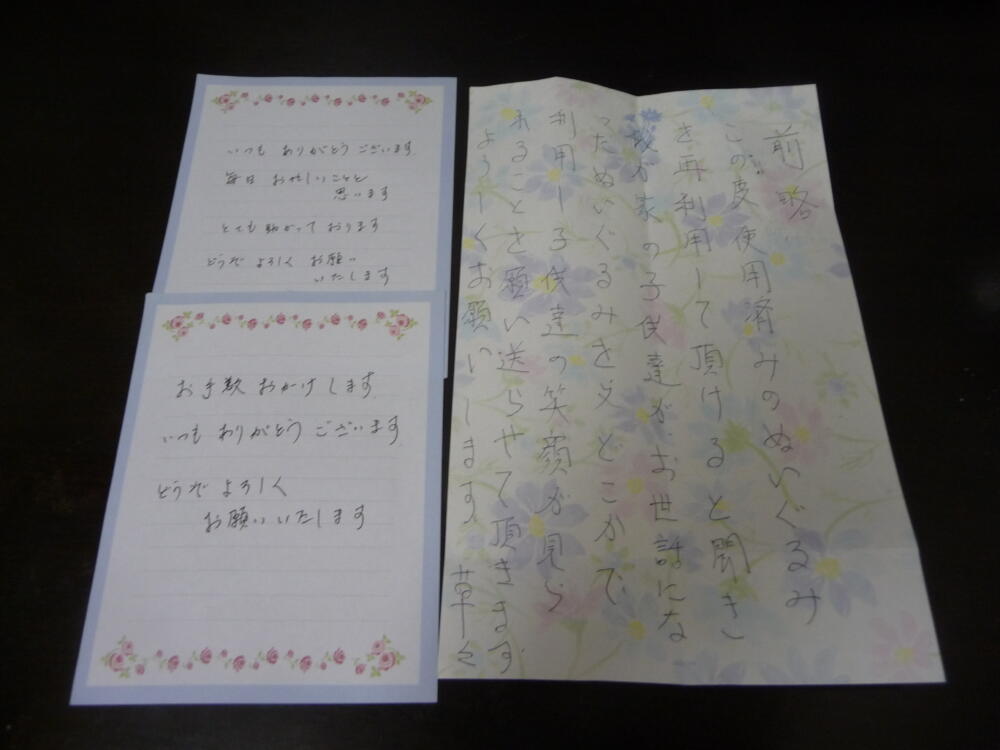 いつも ありがとう ございます
毎日 お忙しいことと
思います
とても 助かって おります
どうぞ よろしく お願い
いたします
お手数 おかけ します
いつも ありがとう ございます
どうぞ よろしく
お願い いたします
前略
この度使用済みのぬいぐるみ
を再利用して頂けると聞き
我が家の子供達がお世話にな
ったぬいぐるみを又どこかで
利用し子供達の笑顔が見ら
れることを願い送らせて頂きます
よろしくお願いします 草々